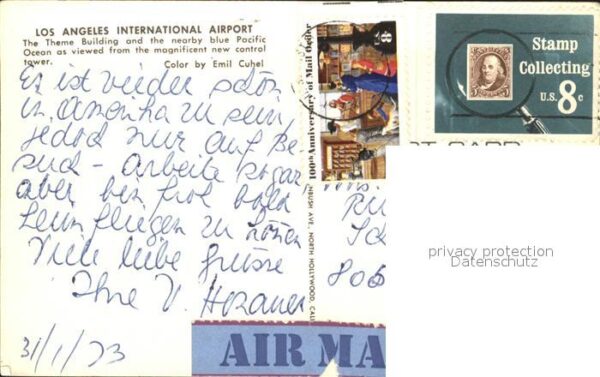 LOS ANGELES INTERNATIONAL AIRPORT
The Theme Building and the nearby blue Pacific
Ocean as viewed from the magnificent new control
tower. Color by Emil Cuhel
Es ist wieder schön
in Amerika zu sein,
jedoch nur auf Be-
such - arbeite sogar
aber bin froh bald
heim fliegen zu können
Viele liebe Grüsse
Ihre V.
31/1/73
100th Anniversary of Mail Order
8c
Stamp
Collecting
U.S. 8c
BUSH AVE., NORTH HOLLYWOOD, CAL
806
privacy protection
Datenschutz
AIR MA